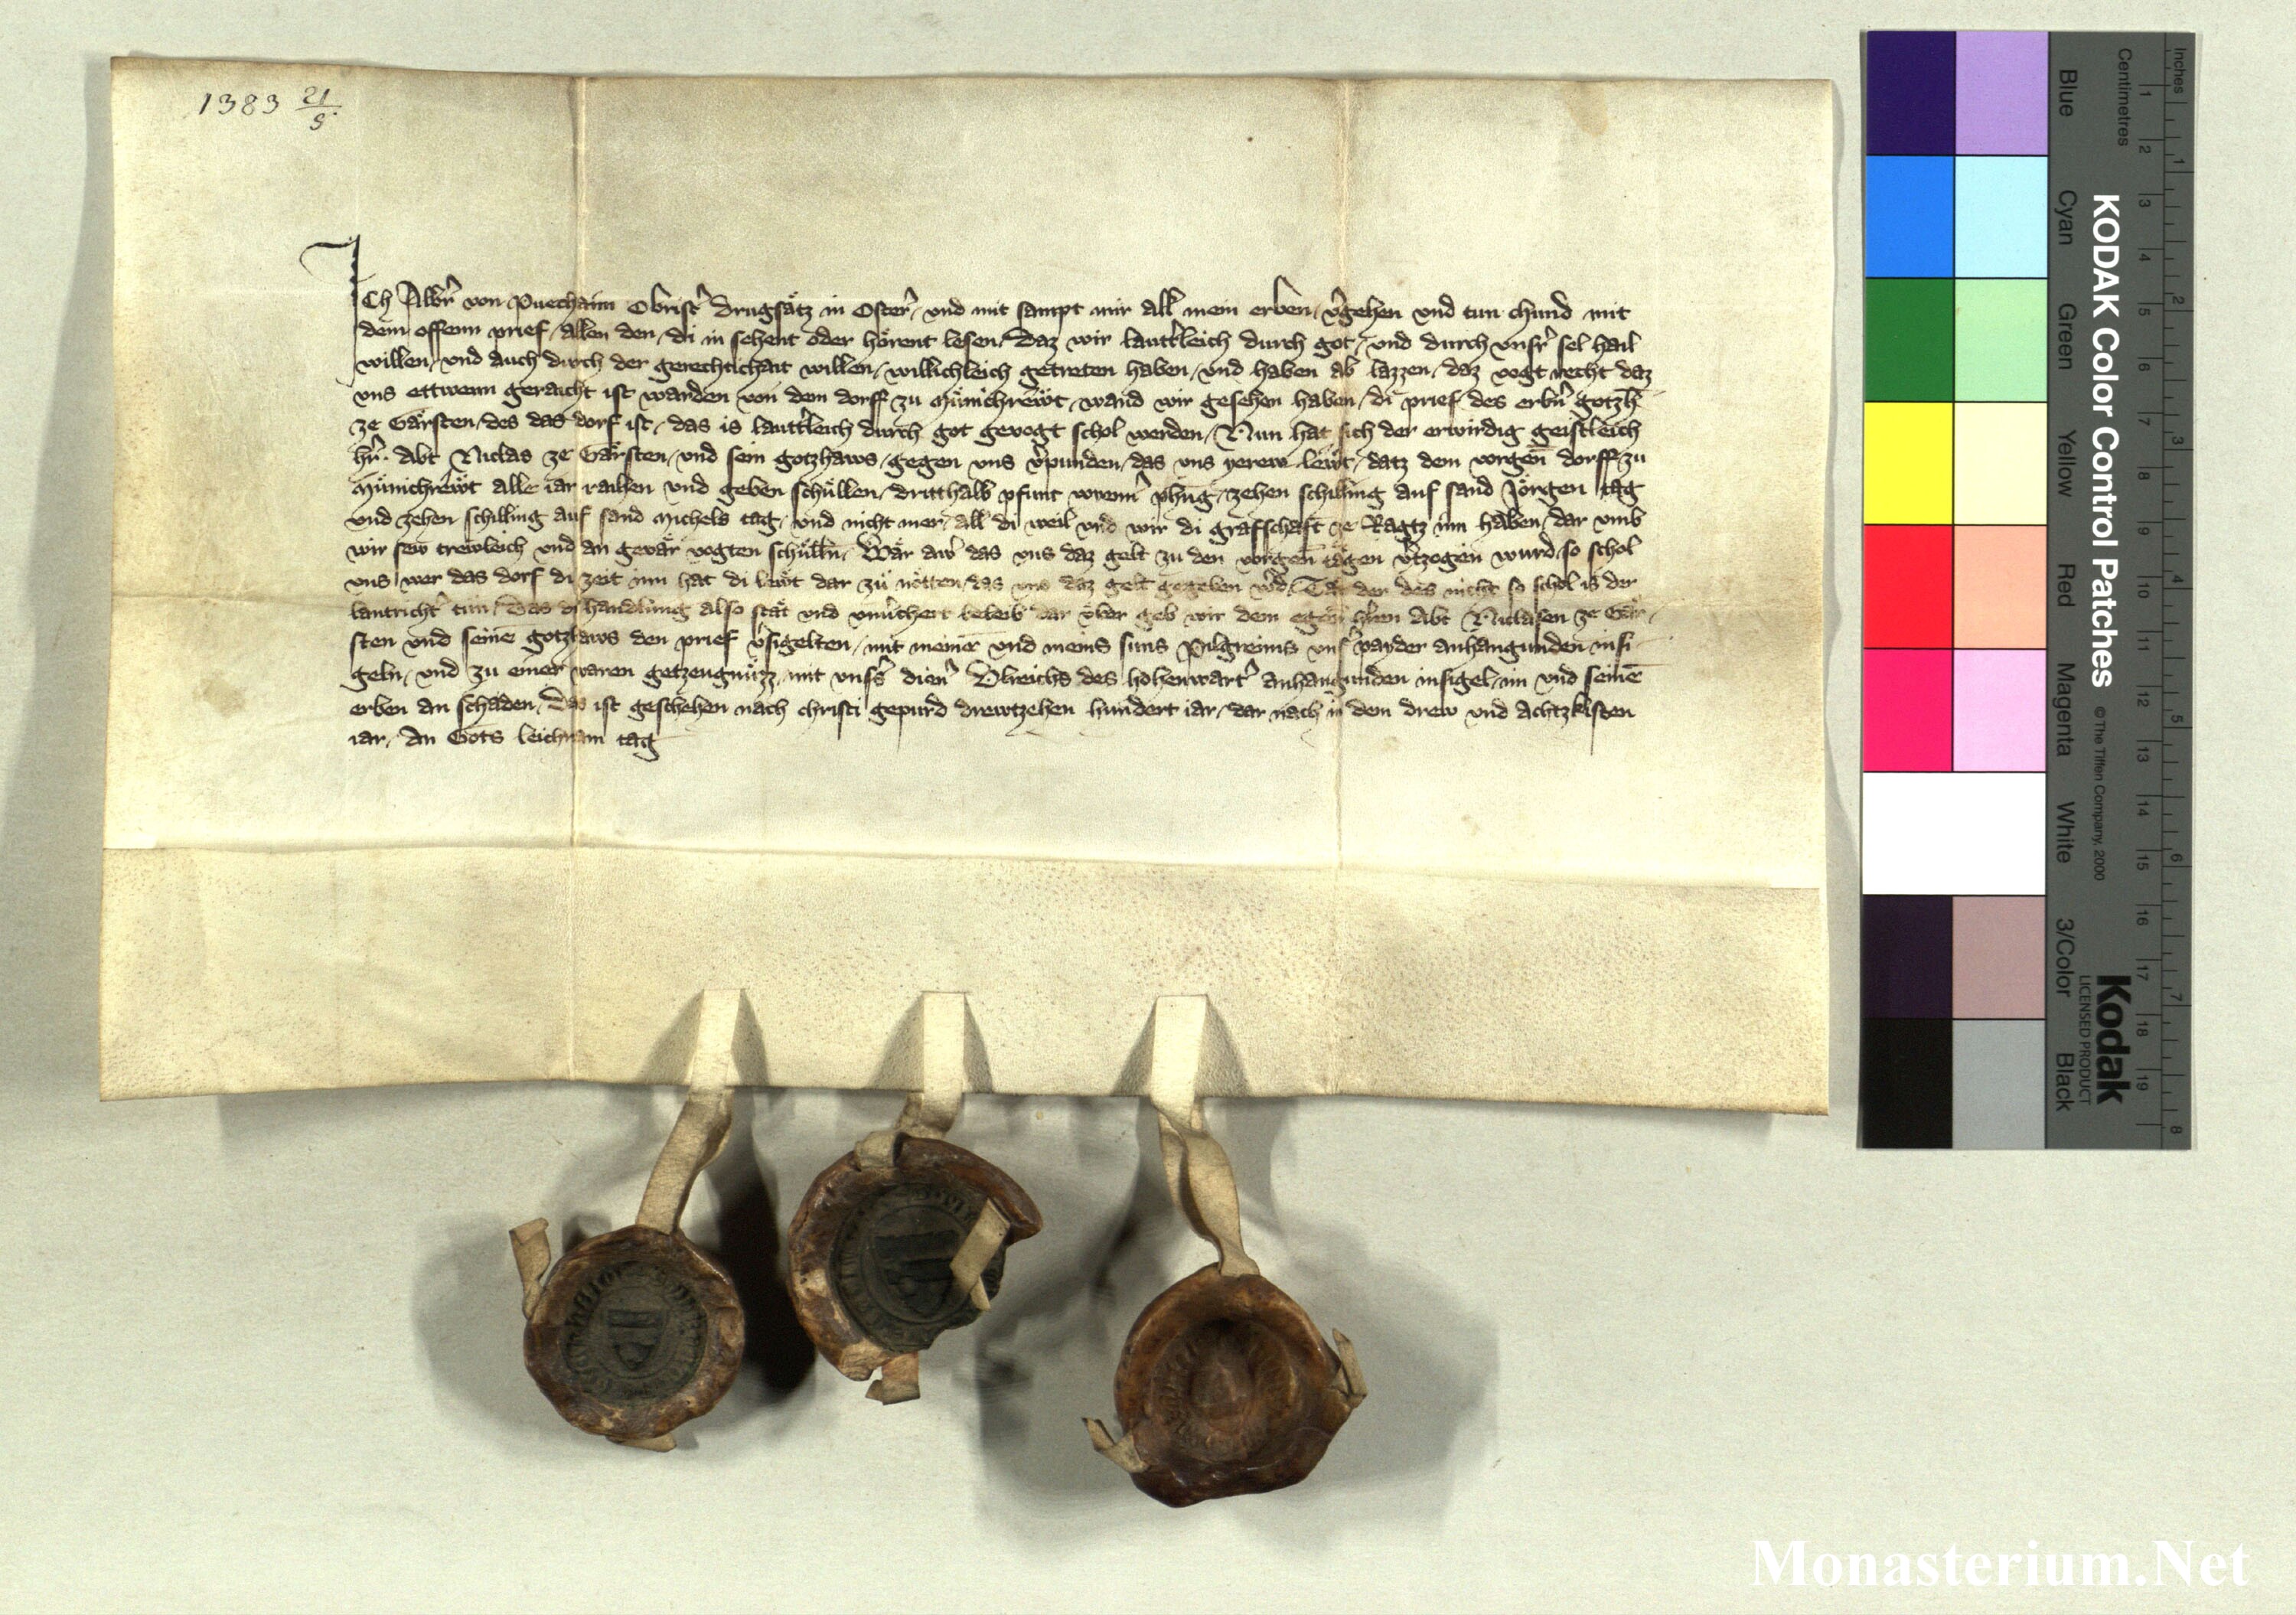 1383 21/5.
Ich Albr̄ von Puechaim Obrist̓ drugsäcz in Öster̓ / vnd mit sampt mir all mein erben / v̓gehen vnd tun chund mit
dem offenn prief / allen den / di in sehent oder hörent lesen / Daz wir lautt̓leich durch got / vnd durch vnsr̓ sel hail
willen / vnd auch durch der gerechtichait willen / willichleich getreten haben / vnd haben ab lazzen / daz vogt recht daz
vns ettwenn geraicht ist warden von dem dorff zu Münichrewt / wand wir gesehen haben / di prief des erbn̓ gotzh̄
ze Gärsten / des das dorf ist / das is lautt̓leich durch got gevogt schol werden / Nun hat sich der erwirdig geistleich
hr̓ Abt Niclas ze Gärsten / vnd sein gotzhaws / gegen vns v̓punden / das vns yerew lewt / datz dem vorgen̄ dorff zu
Münichrewt alle iar raihen vnd geben schüllen / dritthalb pfunt wienn̓ phn̄g / zehen schilling auf sand Jörgen tag
vnd zehen schilling auf sand Michels tag / vnd nicht mer / all di weil vnd wir di grafschaft ze Ragtz inn haben / dar vmb
wir sew trewleich vnd an gevär vogten schülln̄ / Wär aw̓ das vns daz gelt zu den vorgen̄ tägen v̓tzogen wurd / so schol
vns wer das dorf di zeit inn hat di lewt dar zü nötten / das vns daz gelt gegeben w̓d / Tät der des nicht so schol is der
lantricht̓ tün / Das di handlung also stät vnd vnu̓chert beleib dar vber geb wir dem egen̄ hr̄en Abt Niclasen ze Gär-
sten vnd seinē gotzhaws den prief v̓sigelten / mit meinē vnd meins suns Pilgreims vns̓ payder anhangunden insi-
geln / vnd zu einer waren getzeugnüzz / mit vnsr̓s dien̓ Vlreichs des Hohenwart̓ anhangunden insigel / im vnd seinē
erben an schaden / Das ist geschehen nach christi gepurd drewtzehen hundert iar / dar nach in dem drew vnd Achtzkisten
iar / An Gots leichnam tag
KODAK Color Control Patches
© The Tiffen Company, 2000
Kodak
LICENSED PRODUCT
Blue Cyan Green Yellow Red Magenta White 3/Color Black
Centimetres 1 2 3 4 5 6 7 8 9 10 11 12 13 14 15 16 17 18 19
Inches 1 2 3 4 5 6 7 8
Monasterium.Net